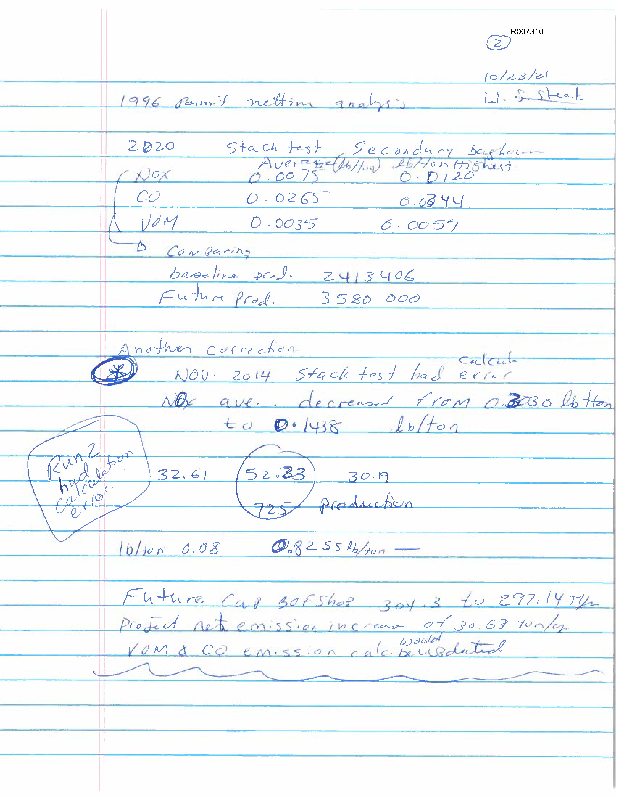 R007310
2
10/23/21
1996 Permit netting analysis
2020 Stack test Secondary baghouse
Average (lb/ton) lb/ton Highest
NOX 0.0075 0.0120
CO 0.0265 0.0344
VOM 0.0035 0.0057
Comparing
baseline prod. 2413406
Future Prod. 3580 000
Another correction
calcula
* NOV. 2014 Stack test had error
NOx ave. decreased from 0.3030 lb/ton
to 0.1438 lb/ton
Run 2
had
calculation
error
32.61 52.33 30.19
725 production
lb/ton 0.08 0.8255 lb/ton —
Future Cap BOF Shop 304.3 to 297.14 T/yr
Project net emission increase of 30.63 ton/yr
VOM & CO emission calc updated